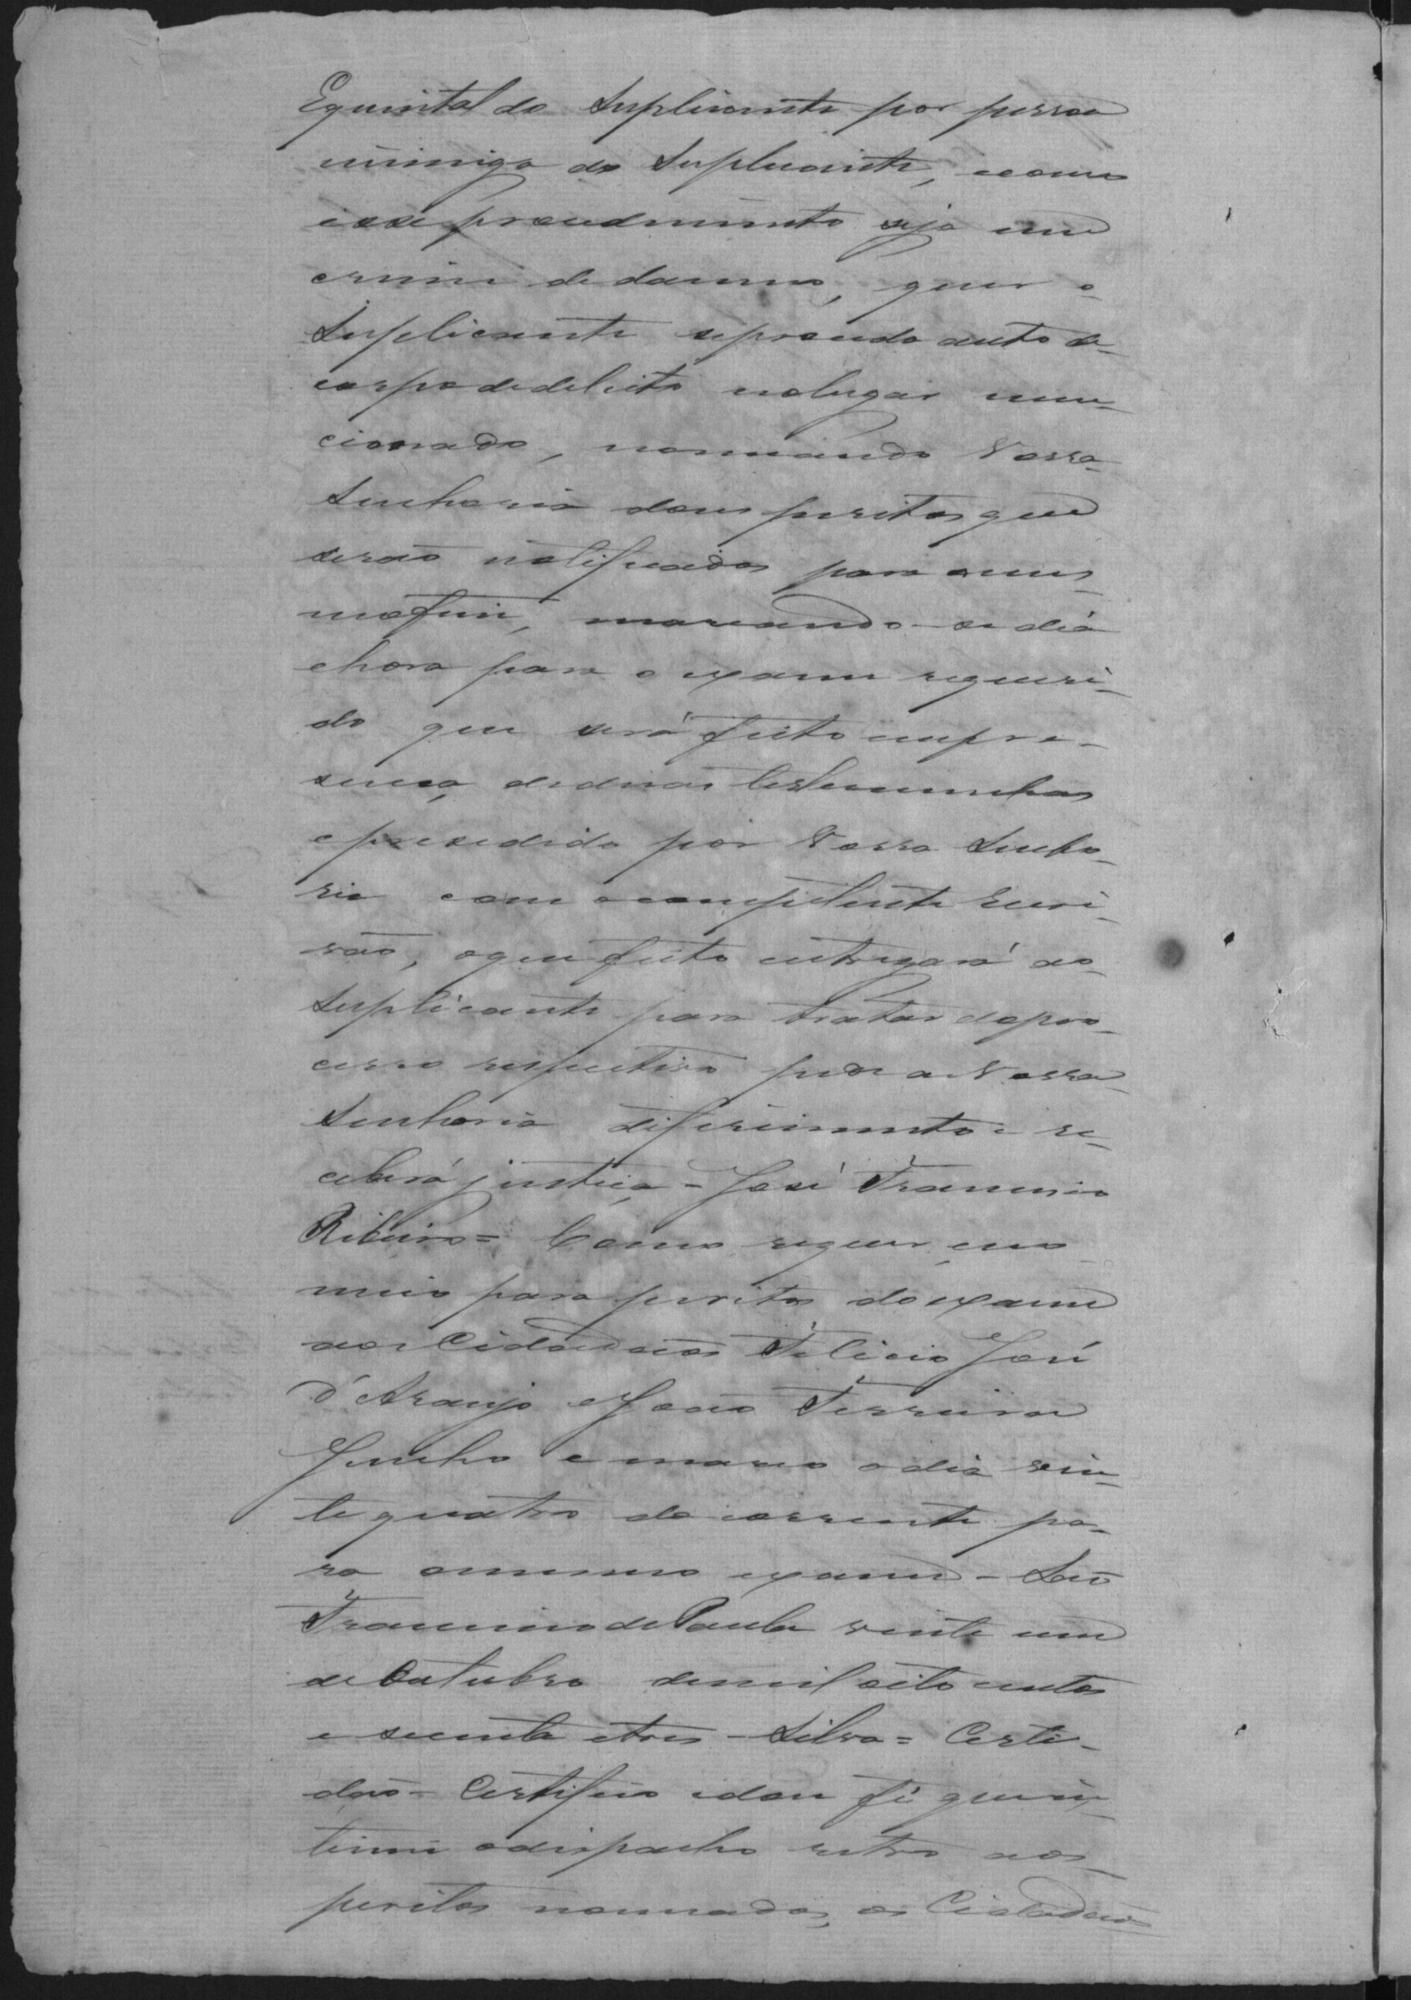 E quintal do Suplicante por pessoa
inimiga do Suplicante, e como
esse procedimento seja um
crime de damno, quer o
Suplicante se proceda auto de
corpo de delicto no lugar men-
cionado, nomeando Vossa
Senhoria dous peritos que
serão notificados para o mes-
mo fim, marcando-se dia
e hora para o exame requeri-
do que será feito em pre-
sença de duas testemunhas
e presedido por Vossa Senho-
ria com o competente Escri-
vão, o que feito entregará ao
Suplicante para tratar do pro-
cesso respectivo pede a Vossa
Senhoria diferimento e re-
ceberá justiça - José Francisco
Ribeiro = Como requer, e no
meio para peritos do exame
aos Cidadãos Felicio José
d'Araujo e João Ferreira
Junho e marco o dia vin-
te quatro do corrente pa-
ra o mesmo exame - São
Francisco de Paula vinte um
de Outubro de mil oito centos
e secenta e tres - Silva = Certi-
dão - Certifico e dou fé que in-
timei o dispacho retro aos
peritos nomeados, os Cidadãos